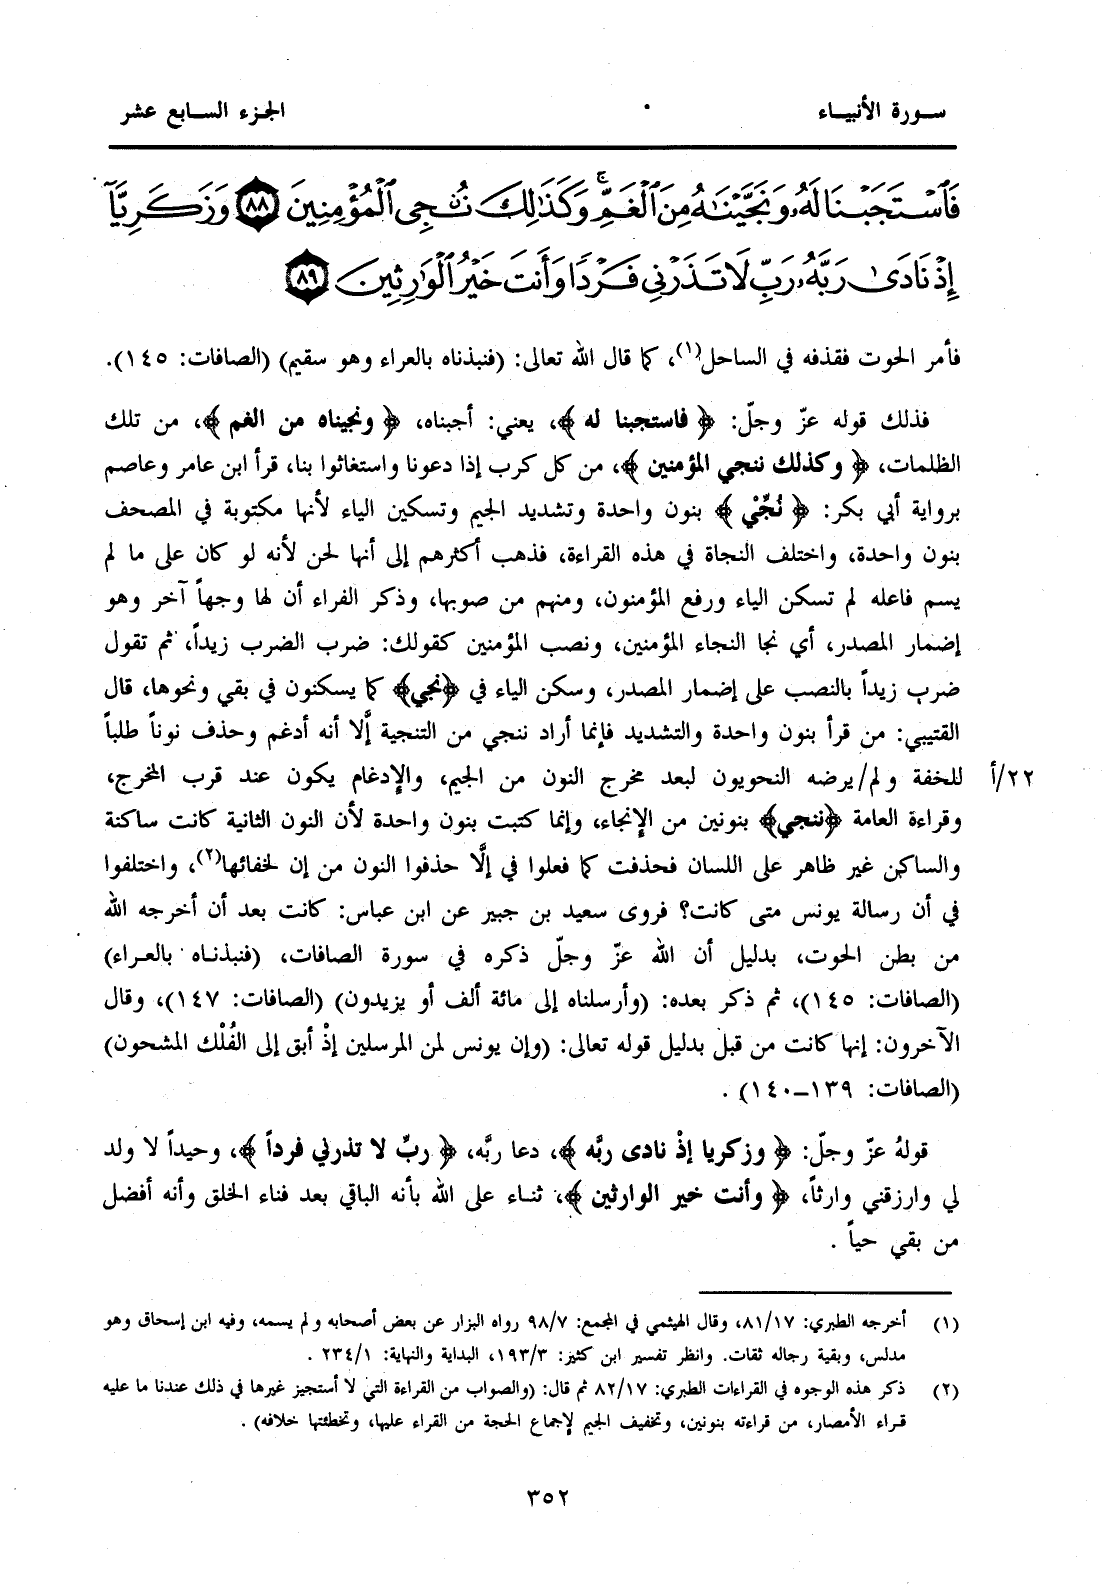 سورة الأنبياء
الجزء السابع عشر
فَٱسْتَجَبْنَا لَهُۥ وَنَجَّيْنَٰهُ مِنَ ٱلْغَمِّ ۚ وَكَذَٰلِكَ نُۨجِى ٱلْمُؤْمِنِينَ ٨٨ وَزَكَرِيَّآ
إِذْ نَادَىٰ رَبَّهُۥ رَبِّ لَا تَذَرْنِى فَرْدًا وَأَنتَ خَيْرُ ٱلْوَٰرِثِينَ ٨٩
فأمر الحوت فقذفه في الساحل(١)، كما قال الله تعالى: (فنبذناه بالعراء وهو سقيم) (الصافات: ١٤٥).
فذلك قوله عزّ وجلّ: ﴿ فاستجبنا له ﴾، يعني: أجبناه، ﴿ ونجيناه من الغم ﴾، من تلك
الظلمات، ﴿ وكذلك ننجي المؤمنين ﴾، من كل كرب إذا دعونا واستغاثوا بنا، قرأ ابن عامر وعاصم
برواية أبي بكر: ﴿ نُجِّيْ ﴾ بنون واحدة وتشديد الجيم وتسكين الياء لأنها مكتوبة في المصحف
بنون واحدة، واختلف النحاة في هذه القراءة، فذهب أكثرهم إلى أنها لحن لأنه لو كان على ما لم
يسم فاعله لم تسكن الياء ورفع المؤمنون، ومنهم من صوبها، وذكر الفراء أن لها وجهاً آخر وهو
إضمار المصدر، أي نجا النجاء المؤمنين، ونصب المؤمنين كقولك: ضرب الضرب زيداً، ثم تقول
ضرب زيداً بالنصب على إضمار المصدر، وسكن الياء في ﴿نجي﴾ كما يسكنون في بقي ونحوها، قال
القتيبي: من قرأ بنون واحدة والتشديد فإنما أراد ننجي من التنجية إلَّا أنه أدغم وحذف نوناً طلباً
للخفة ولم/يرضه النحويون لبعد مخرج النون من الجيم، والإدغام يكون عند قرب المخرج، ٢٢/أ
وقراءة العامة ﴿ننجي﴾ بنونين من الإنجاء، وإنما كتبت بنون واحدة لأن النون الثانية كانت ساكنة
والساكن غير ظاهر على اللسان فحذفت كما فعلوا في إلَّا حذفوا النون من إن لخفائها(٢)، واختلفوا
في أن رسالة يونس متى كانت؟ فروى سعيد بن جبير عن ابن عباس: كانت بعد أن أخرجه الله
من بطن الحوت، بدليل أن الله عزّ وجلّ ذكره في سورة الصافات، (فنبذناه بالعراء)
(الصافات: ١٤٥)، ثم ذكر بعده: (وأرسلناه إلى مائة ألف أو يزيدون) (الصافات: ١٤٧)، وقال
الآخرون: إنها كانت من قبل بدليل قوله تعالى: (وإن يونس لمن المرسلين إذْ أبق إلى الفُلْك المشحون)
(الصافات: ١٣٩-١٤٠) .
قولهُ عزّ وجلّ: ﴿ وزكريا إذْ نادى ربَّه ﴾، دعا ربَّه، ﴿ ربِّ لا تذرني فرداً ﴾، وحيداً لا ولد
لي وارزقني وارثاً، ﴿ وأنت خير الوارثين ﴾، ثناء على الله بأنه الباقي بعد فناء الخلق وأنه أفضل
من بقي حياً .
(١) أخرجه الطبري: ٨١/١٧، وقال الهيثمي في المجمع: ٩٨/٧ رواه البزار عن بعض أصحابه ولم يسمه، وفيه ابن إسحاق وهو
مدلس، وبقية رجاله ثقات. وانظر تفسير ابن كثير: ١٩٣/٣، البداية والنهاية: ٢٣٤/١ .
(٢) ذكر هذه الوجوه في القراءات الطبري: ٨٢/١٧ ثم قال: (والصواب من القراءة التي لا أستجيز غيرها في ذلك عندنا ما عليه
قراء الأمصار، من قراءته بنونين، وتخفيف الجيم لإجماع الحجة من القراء عليها، وتخطئتها خلافه) .
٣٥٢